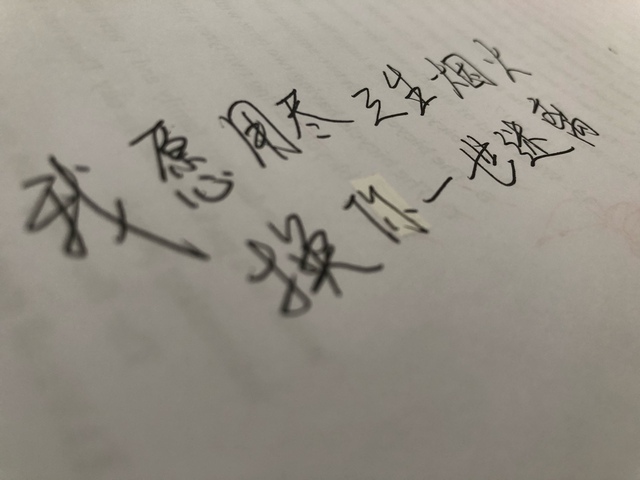 我愿用尽三生烟火
换你一世迷离